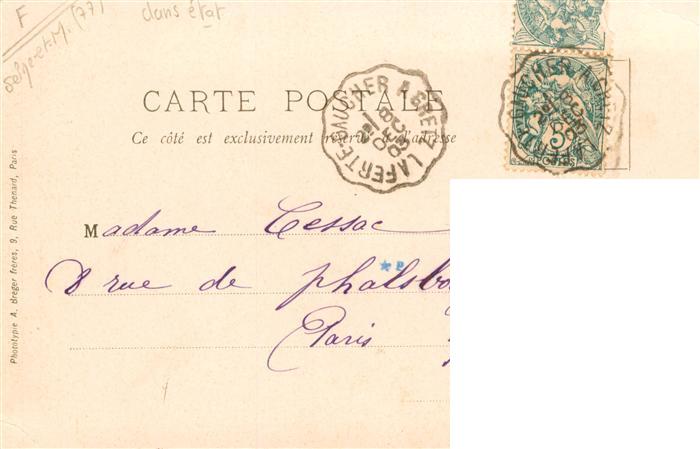 F
Seine-et-M. (77)
dans état
CARTE POSTALE
Ce côté est exclusivement réservé à l'adresse
LAFERTE GAUCHER A
5
POSTES
Madame Cessac
8 rue de phalsbo
Paris
Phototypie A. Breger frères, 9, Rue Thenard, Paris